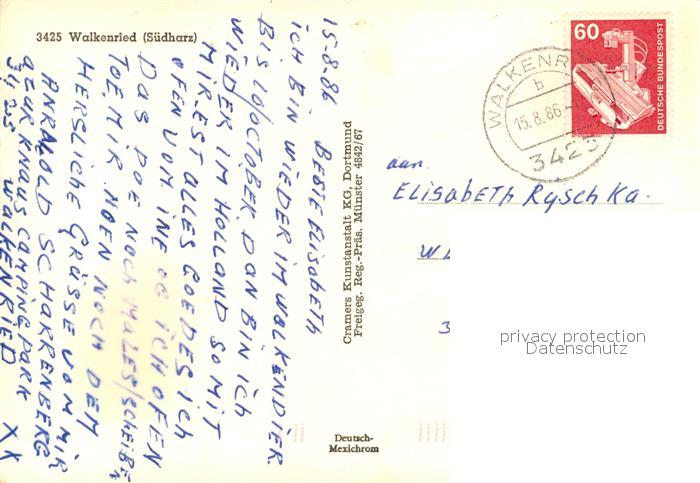 3425 Walkenried (Südharz)
15-8-86
BESTE ELISABETH
iCH BIN WIEDER IM WALKENDIER
BIS 1/OCTOBER DAN BIN ICH
WIEDER IM HOLLAND SO MIT
MIR EST ALLES GOEDES ICH
OFEN VOM INE OC iCH OFEN
DAS DOE NOCH MALES/SCHEIBEN
TOE MIR. HOEN NOCH DEM
HERSLICHE GRÜSSE VOM MIR
ANRAOLD SCHARRENBERG
AZUR KNAUS CAMPINGPARK
3425 WALKENRIED XX
Cramers Kunstanstalt KG, Dortmund
Freigeg. Reg.-Präs. Münster 4842/67
Deutsch-
Mexichrom
60
DEUTSCHE BUNDESPOST
WALKENR
b
15.8.86
3425
aan.
ELISABETH RYSCHKA.
W
3
privacy protection
Datenschutz